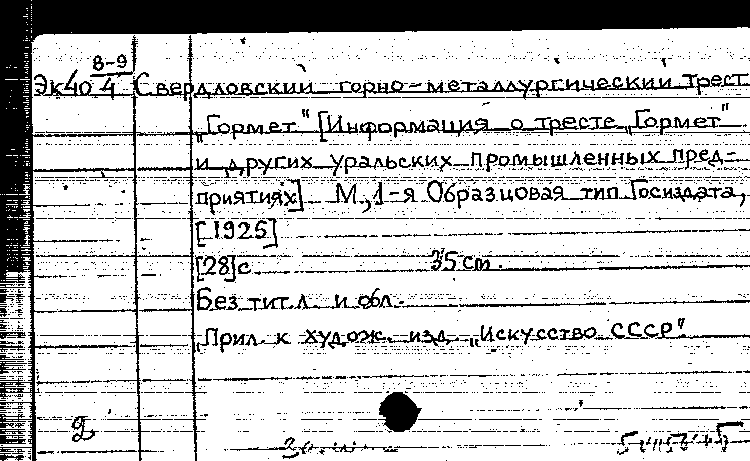 8-9
Эк40 4 Свердловский горно-металлургический трест
„Гормет" [Информация о тресте „Гормет"
и других уральских промышленных пред-
приятиях] М., 1-я Образцовая тип Госиздата,
[1925]
[28]с 35 cm.
Без тит.л. и обл.
„Прил. к худож. изд. „Искусство СССР"